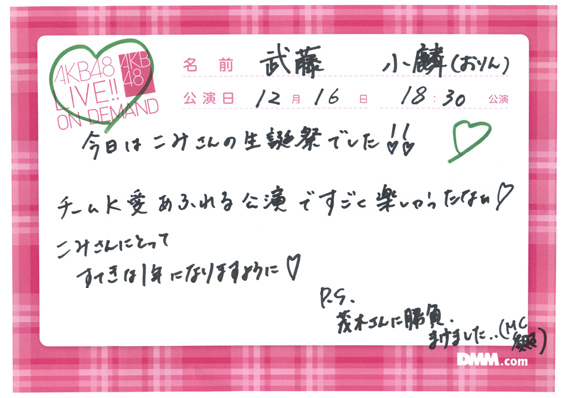 AKB48
LIVE!!
ON DEMAND
AKB
48
名前 武藤 小麟(おりん)
公演日 12月16日 18:30 公演
今日はこみさんの生誕祭でした!!
チームK愛あふれる公演ですごく楽しかったなぁ♡
こみさんにとって
すてきな1年になりますように♡
P.S.
茂木さんに勝負、
まけました..(MC
DMM.com